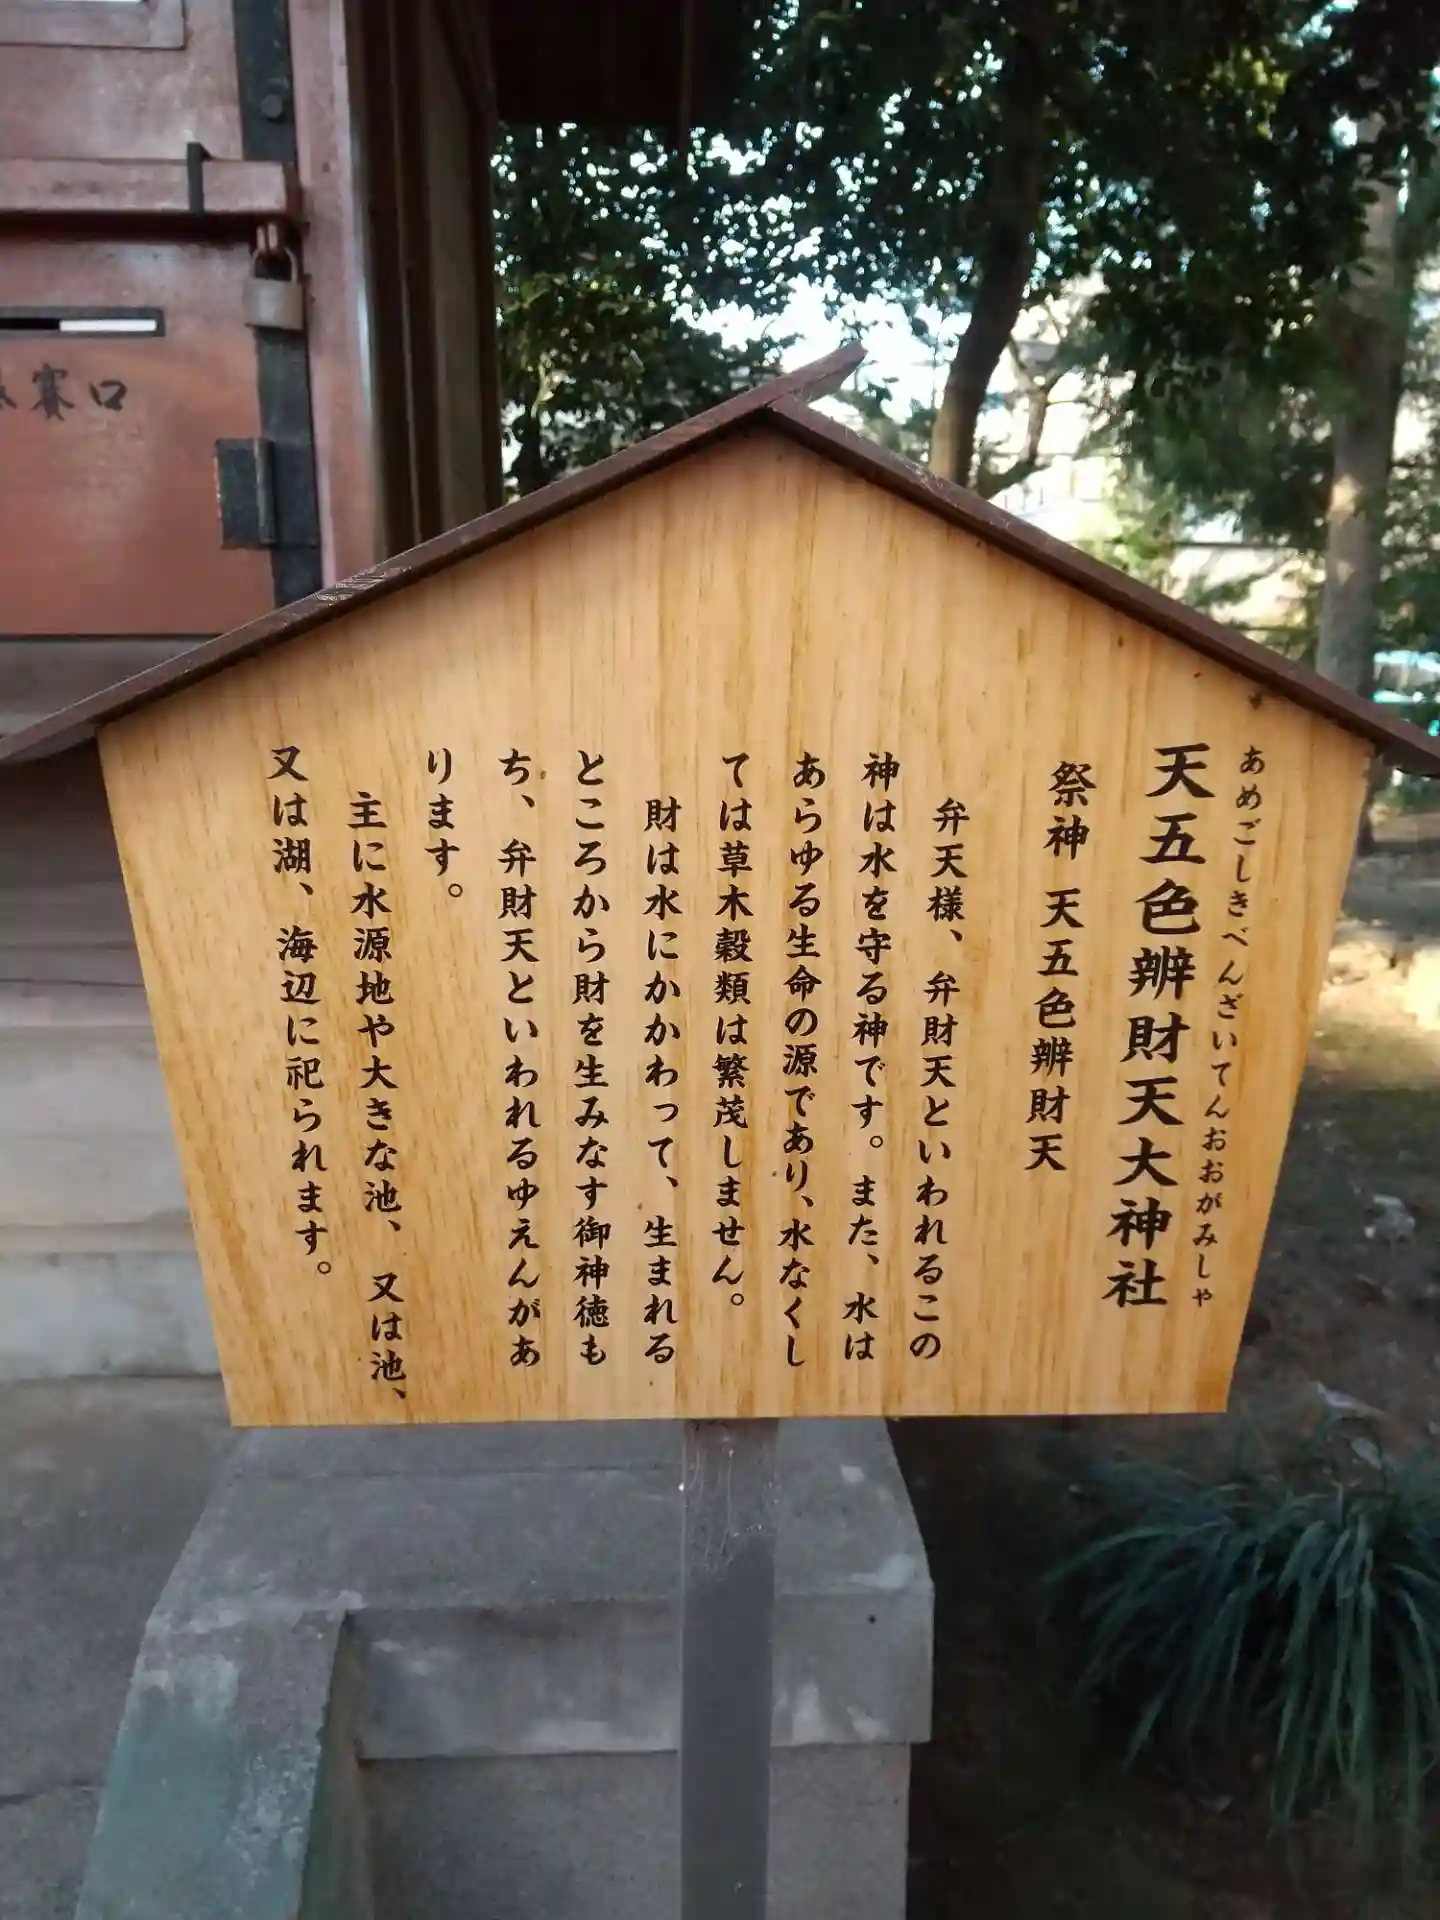 あめごしきべんざいてんおおがみしゃ
天五色辨財天大神社
祭神 天五色辨財天
弁天様、弁財天といわれるこの
神は水を守る神です。また、水は
あらゆる生命の源であり、水なくし
ては草木穀類は繁茂しません。
財は水にかかわって、生まれる
ところから財を生みなす御神徳も
ち、弁財天といわれるゆえんがあ
ります。
主に水源地や大きな池、又は池、
又は湖、海辺に祀られます。
賽口